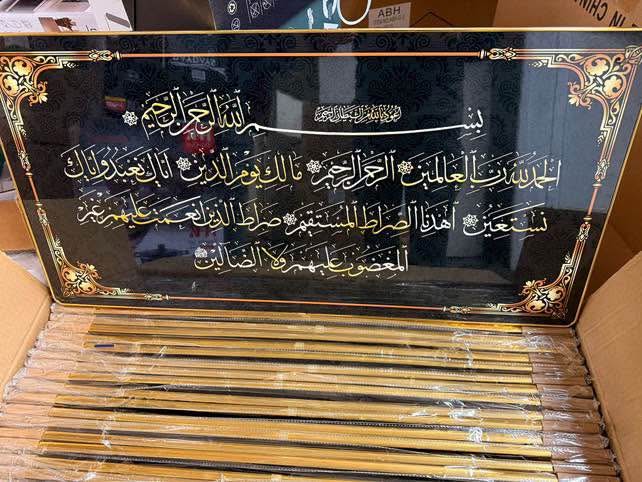 ABH
IN CHINA
أعوذ بالله من الشيطان الرجيم
بسم الله الرحمن الرحيم
الحمد لله رب العالمين الرحمن الرحيم مالك يوم الدين اياك نعبد واياك
نستعين اهدنا الصراط المستقيم صراط الذين انعمت عليهم غير
المغضوب عليهم ولا الضالين